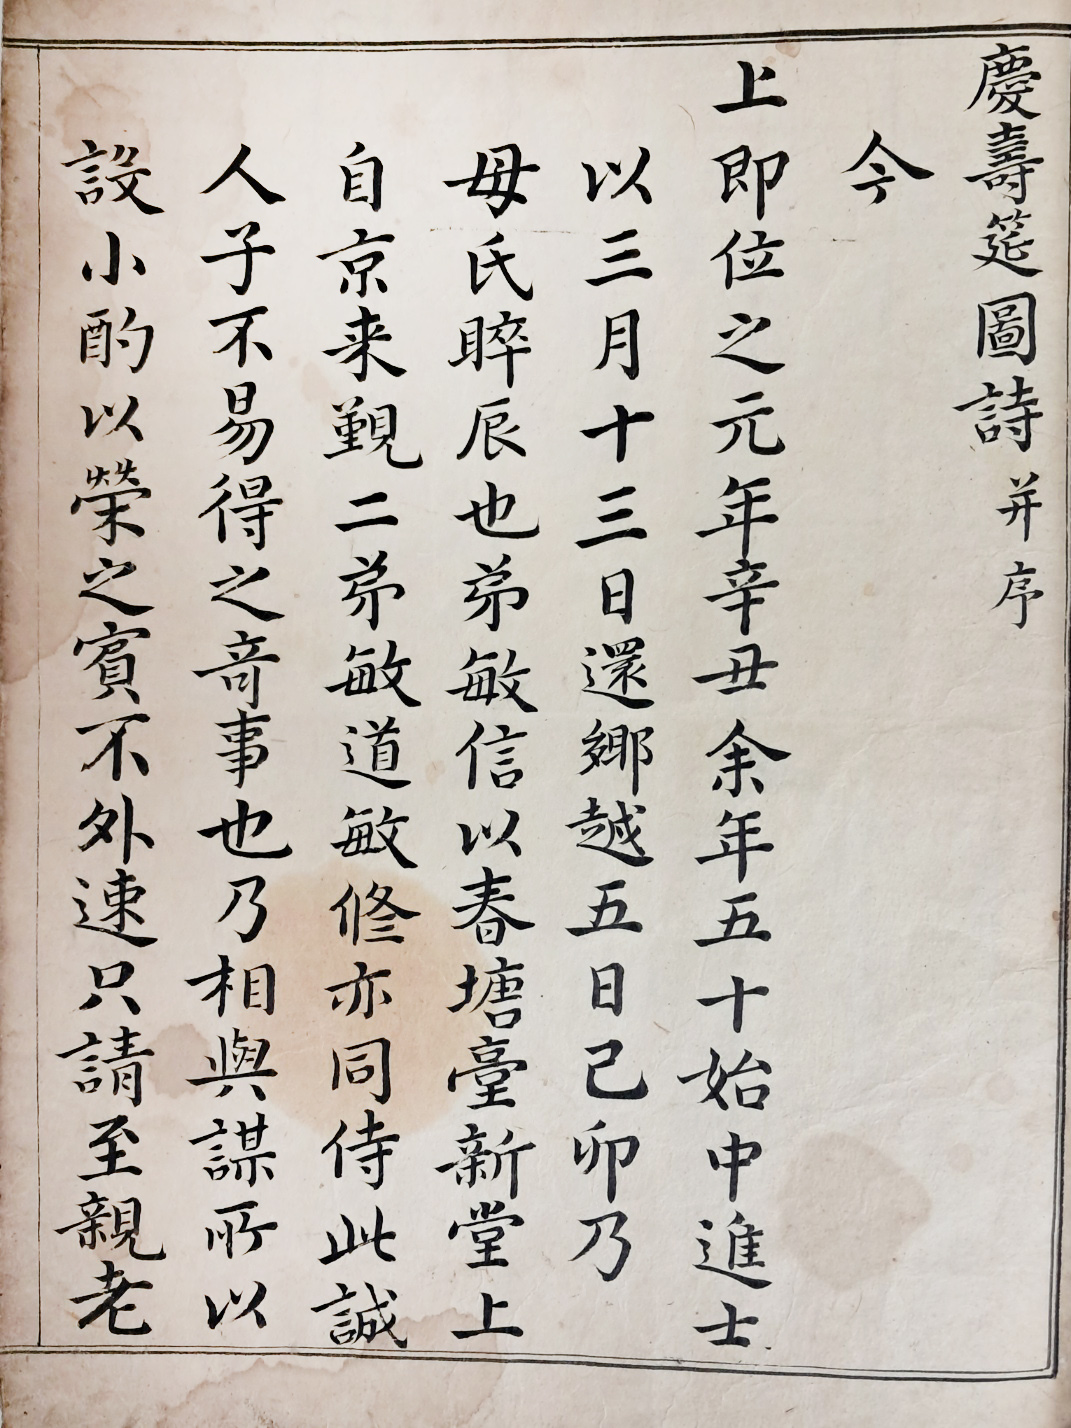 慶壽筵圖詩并序
今
上即位之元年辛丑余年五十始中進士
以三月十三日還鄉越五日己卯乃
母氏晬辰也弟敏信以春塘臺新堂上
自京来覲二弟敏道敏修亦同侍此誠
人子不易得之竒事也乃相與謀所以
設小酌以榮之賓不外速只請至親老